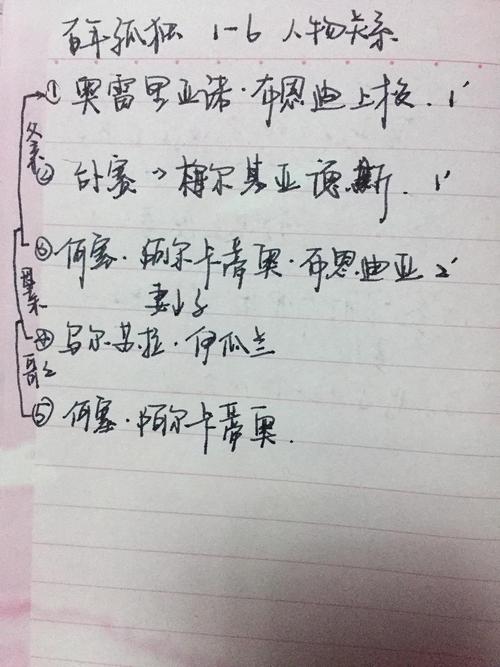 百年孤独 1-6 人物关系
① 奥雷里亚诺·布恩迪上校. 1'
父亲
② 吉赛 → 梅尔基亚德斯. 1'
③ 何塞·阿尔卡蒂奥·布恩迪亚 2'
母亲
妻子
④ 乌尔苏拉·伊瓜兰
哥哥
⑤ 何塞·阿尔卡蒂奥.